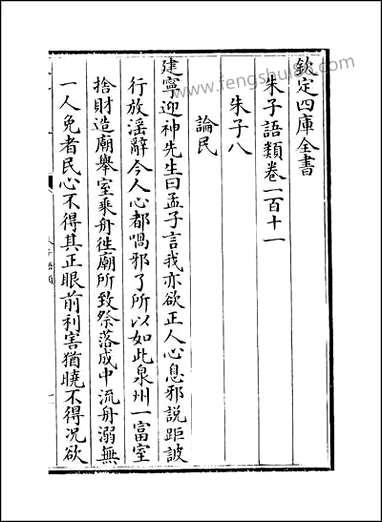 欽定四庫全書
朱子語類卷一百十一
朱子八
論民
建寧迎神先生曰孟子言我亦欲正人心息邪說距詖
行放淫辭今人心都喎邪了所以如此泉州一富室
捨財造廟舉室乘舟徃廟所致祭落成中流舟溺無
一人免者民心不得其正眼前利害猶曉不得況欲
www.fengshui86.com